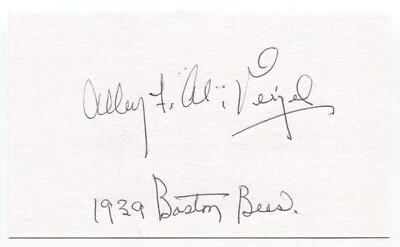 Alley F. "Al" Veigel
1939 Boston Bees.